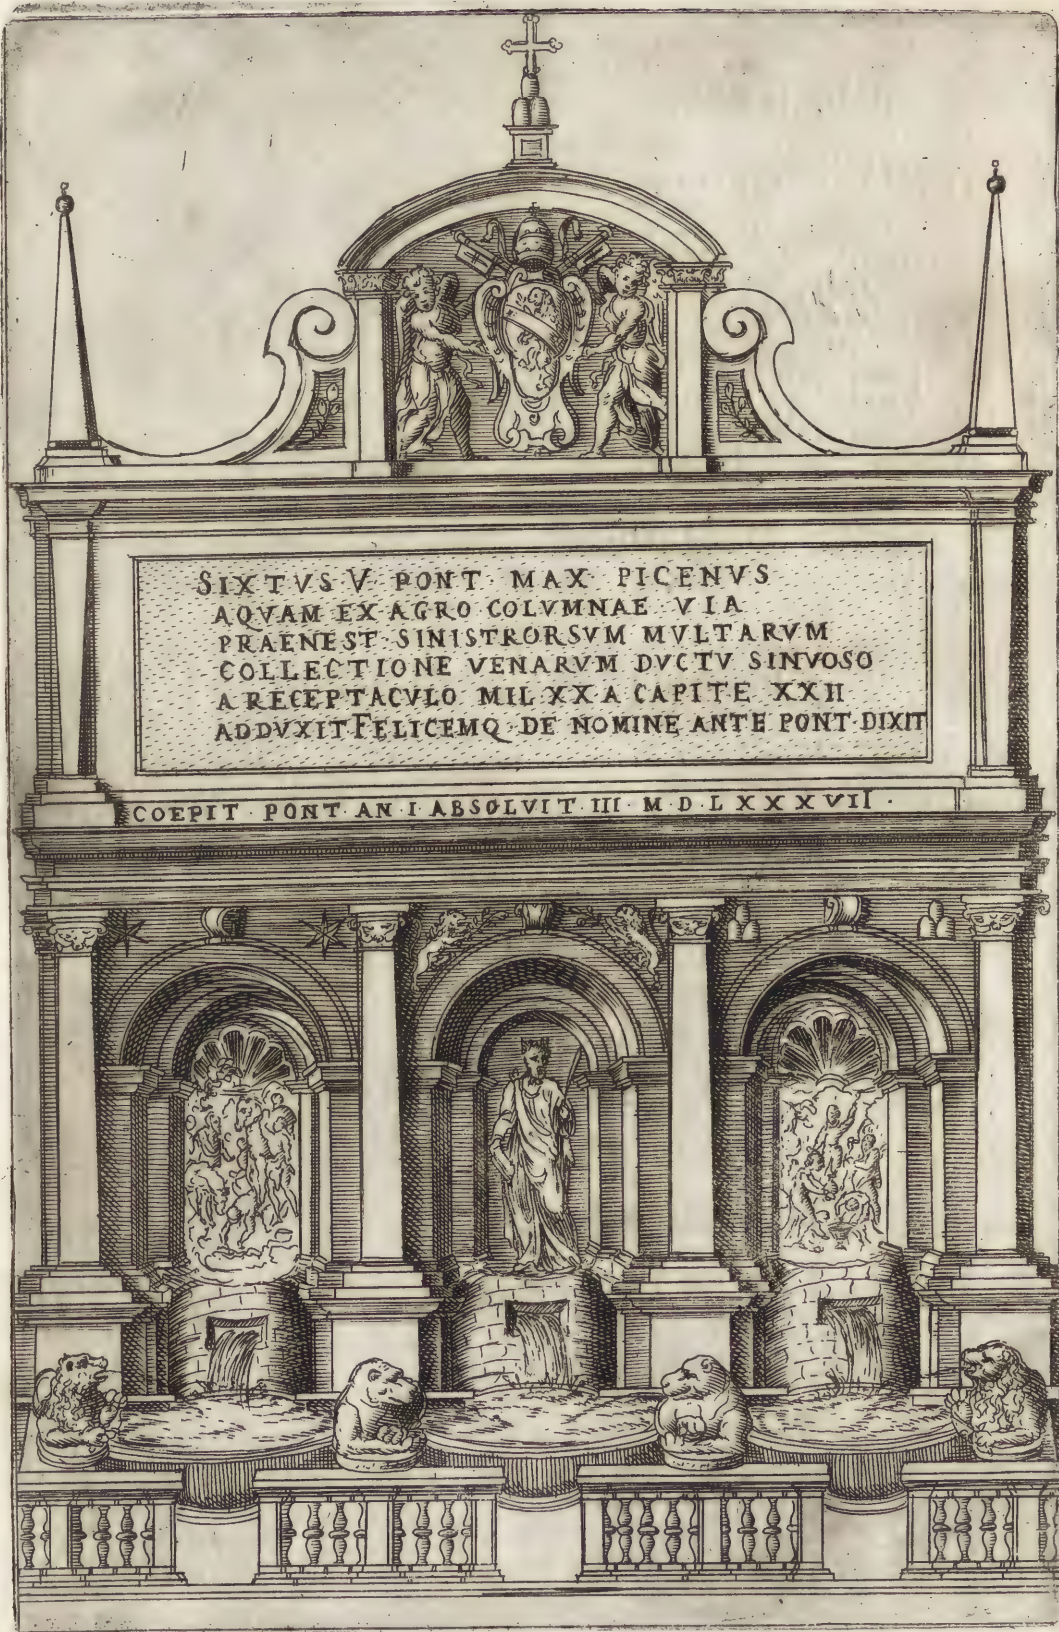 SIXTVS·V·PONT·MAX·PICENVS
AQVAM EX AGRO COLVMNAE VIA
PRAENEST·SINISTRORSVM MVLTARVM
COLLECTIONE VENARVM DVCTV SINVOSO
A RECEPTACVLO MIL XX A CAPITE XXII
ADDVXIT FELICEMQ·DE NOMINE ANTE PONT·DIXIT
COEPIT·PONT·AN·I·ABSOLVIT·III·M·D·LXXXVII·